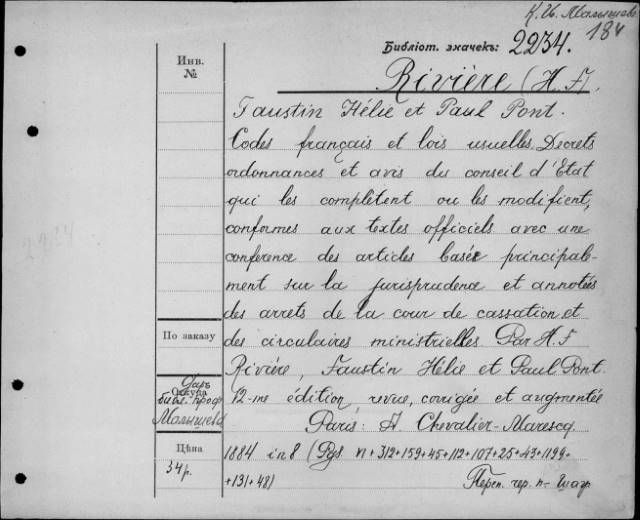 К. И. Малышев
184
Библіот. значекъ: 2234.
Инв.
№
Rivière (H. F).
Faustin Hélie et Paul Pont.
Codes français et lois usuelles. Decrets
ordonnances et avis du conseil d'Etat
qui les complètent ou les modifient,
conformes aux textes officiels avec une
conference des articles basée principale-
ment sur la jurisprudence et annotées
des arrets de la cour de cassation et
des circulaires ministrielles. Par H. F
Rivière, Faustin Hélie et Paul Pont.
12-me édition revue, corrigée et augmentée
Paris: A. Chevalier-Marescq.
1884 in 8 (Pgs VI+312+159+45+112+107+25+43+1199+
+131+48)
Переп. чер. п.
По заказу
Даръ
Откуда
библ. проф
Малышева
Цѣна
34 р.
2234